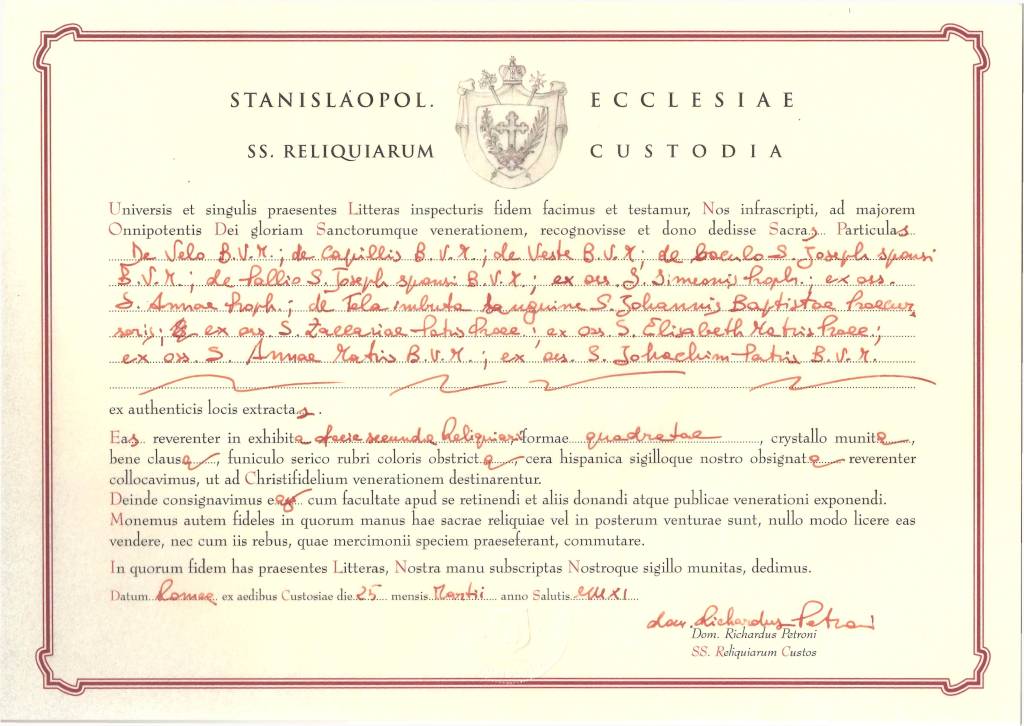 STANISLAOPOL. ECCLESIAE
SS. RELIQUIARUM CUSTODIA
Universis et singulis praesentes Litteras inspecturis fidem facimus et testamur, Nos infrascripti, ad majorem
Onnipotentis Dei gloriam Sanctorumque venerationem, recognovisse et dono dedisse Sacras Particulas
De Velo B.V.M.; de Capillis B.V.M.; de Veste B.V.M; de baculo S. Joseph sponsi
B.V.M.; de Pallio S. Joseph sponsi B.V.M.; ex oss. S. Simeonis Proph.; ex oss.
S. Annae Proph.; de Tela imbuta Sanguine S. Johannis Baptistae Praecur
soris; ex oss. S. Zaccariae Patris Praec.; ex oss. S. Elisabeth Matris Praec.;
ex oss. S. Annae Matris B.V.M.; ex oss. S. Johachim Patris B.V.M.
ex authenticis locis extractas.
Eas reverenter in exhibita facie secunda Reliquiarii formae quadratae, crystallo munita,
bene clausa, funiculo serico rubri coloris obstricta, cera hispanica sigilloque nostro obsignata reverenter
collocavimus, ut ad Christifidelium venerationem destinarentur.
Deinde consignavimus cum facultate apud se retinendi et aliis donandi atque publicae venerationi exponendi.
Monemus autem fideles in quorum manus hae sacrae reliquiae vel in posterum venturae sunt, nullo modo licere eas
vendere, nec cum iis rebus, quae mercimonii speciem praeseferant, commutare.
In quorum fidem has praesentes Litteras, Nostra manu subscriptas Nostroque sigillo munitas, dedimus.
Datum Romae ex aedibus Custosiae die 25 mensis Martii anno Salutis MMXI
dom. Richardus Petroni
Dom. Richardus Petroni
SS. Reliquiarum Custos